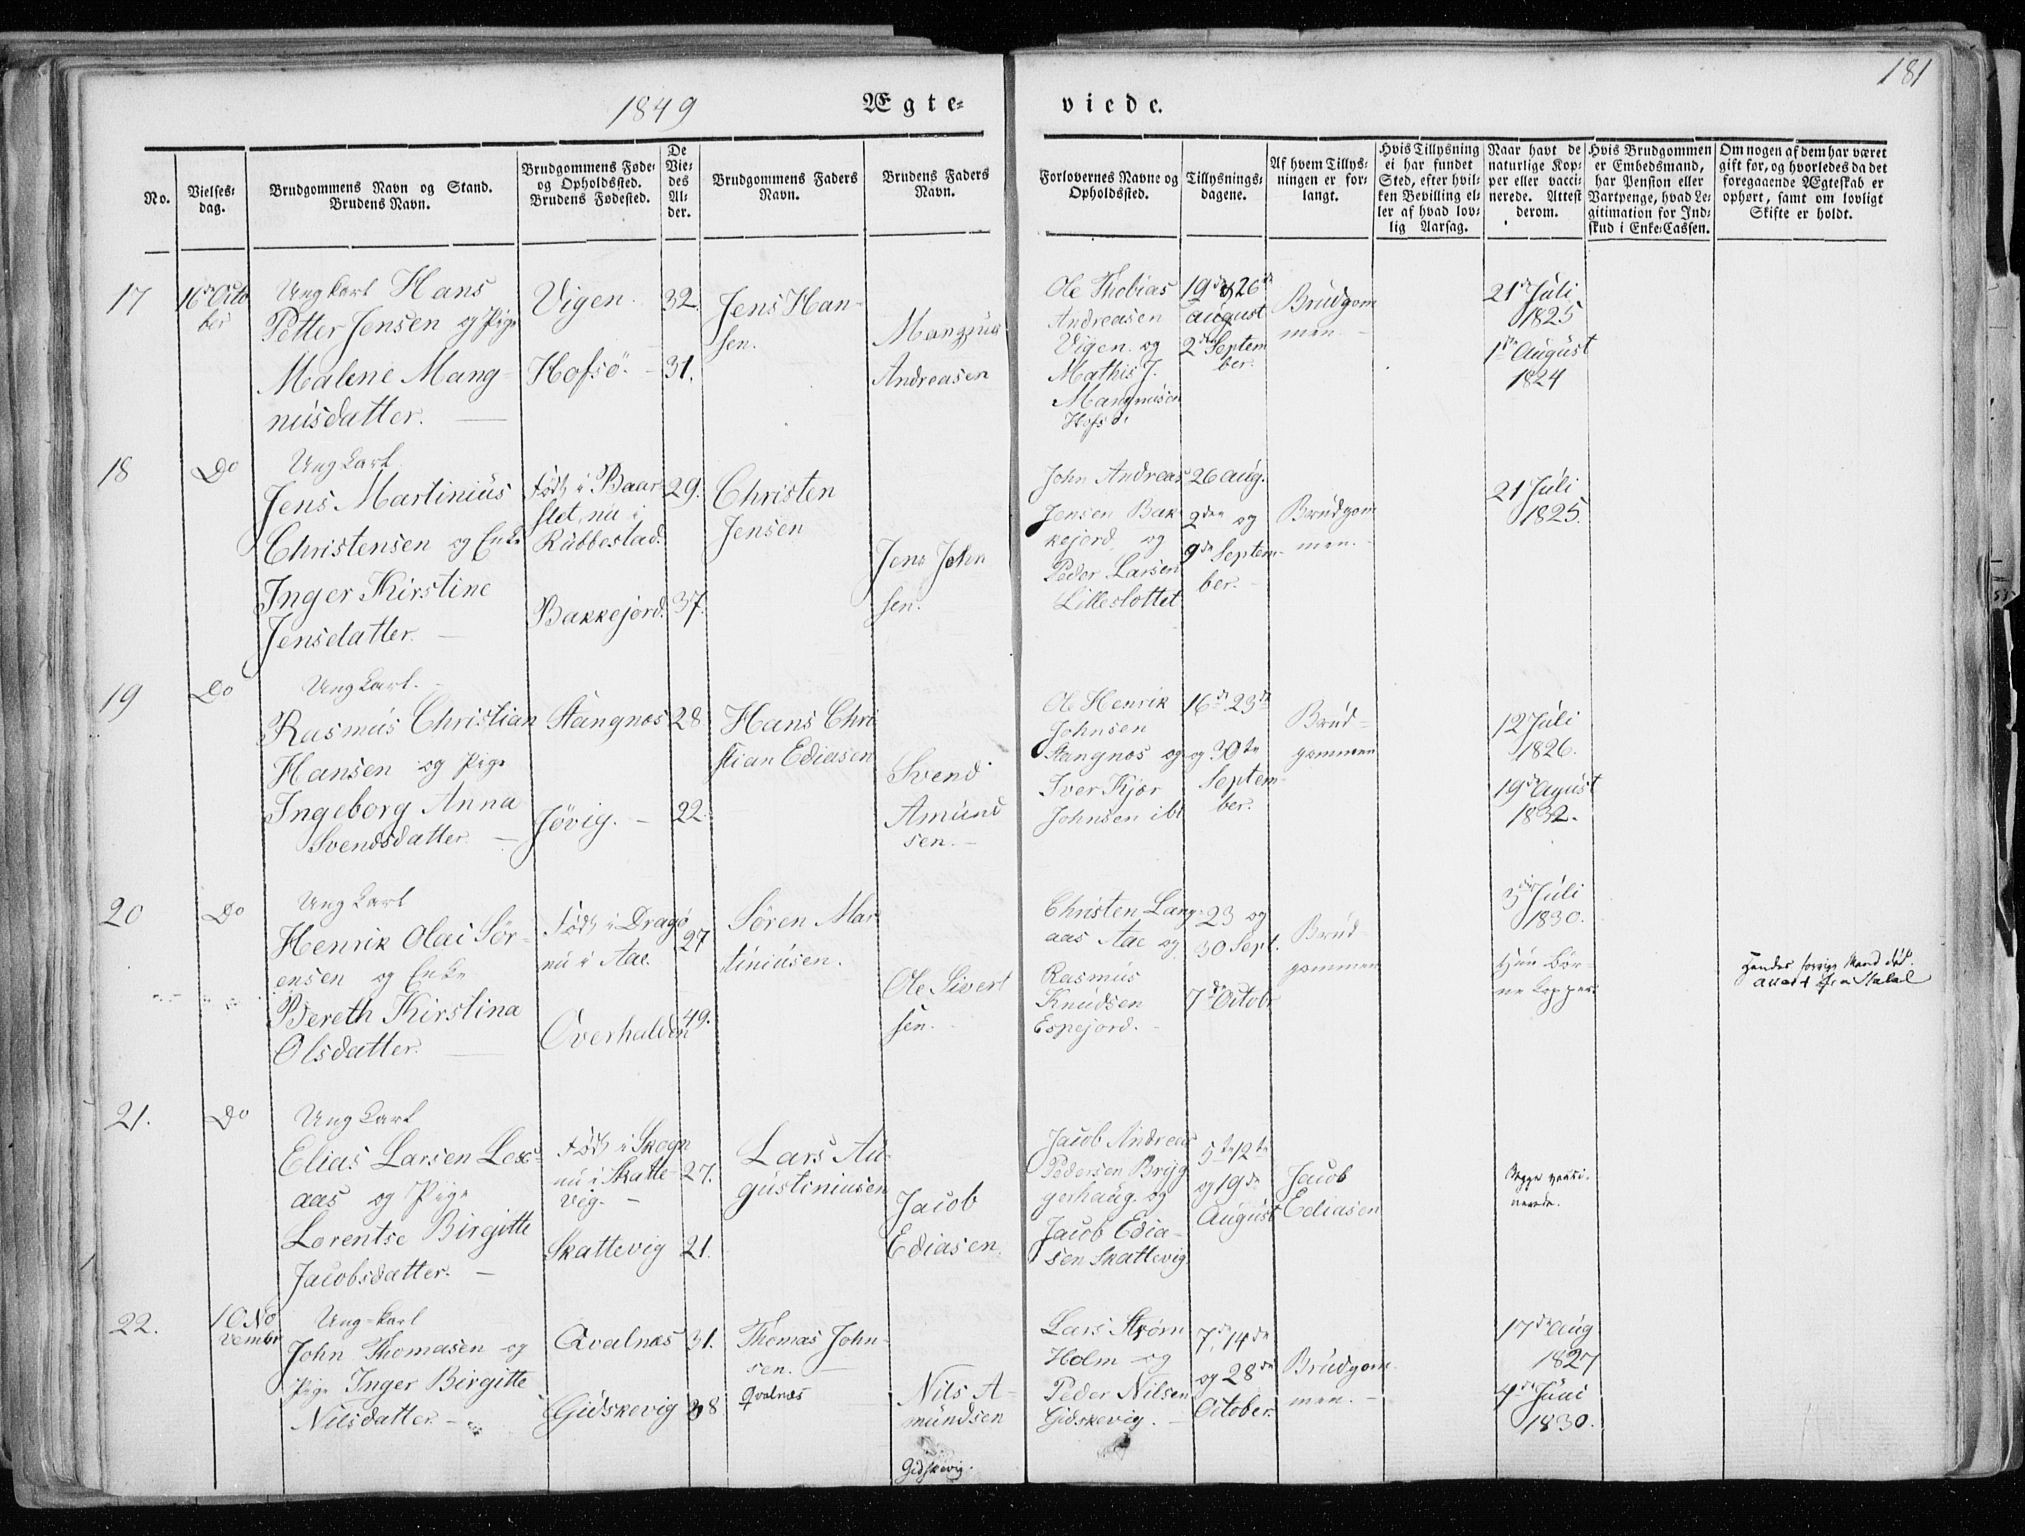 181
1849
Ægte-
viede.
No.
Vielses-
dag.
Brudgommens Navn og Stand.
Brudens Navn.
Brudgommens Føde-
og Opholdssted.
Brudens Fødested.
De
Vie-
des
Al-
der.
Brudgommens Faders
Navn.
Brudens Faders
Navn.
Forlovernes Navne og
Opholdssted.
Tillysnings-
dagene.
Af hvem Tillys-
ningen er for-
langt.
Hvis Tillysning
ei har fundet
Sted, efter hvil-
ken Bevilling el-
ler af hvad lov-
lig Aarsag.
Naar havt de
naturlige Kop-
per eller vacci-
nerede. Attest
derom.
Hvis Brudgommen
er Embedsmand,
har Pension eller
Vartpenge, hvad Le-
gitimation for Ind-
skud i Enke-Cassen.
Om nogen af dem har været
gift før, og hvorledes da det
foregaaende Ægteskab er
ophørt, samt om lovligt
Skifte er holdt.
17
16de Octo
ber
Ungkarl Hans
Petter Jensen og Pige
Malene Mang-
nusdatter.
Vigen.
Hofsö.
32.
31.
Jens Han-
sen.
Mangnus
Andreasen
Ole Thobias
Andreasen
Vigen. og
Mathis J.
Mangnusen
Hofsö.
19de & 26de
August
2den Septem
ber.
Brudgom
men.
21de Juli
1825
1de August
1824
18
Do
Ungkarl
Jens Martinius
Christensen og Enke
Inger Kirstine
Jensdatter.
Född i Baar-
slet, nu i
Rubbestad.
Bakkejord.
29.
37.
Christen
Jensen
Jens John
sen.
John Andreas
Jensen Bak-
kejord, og
Peder Larsen
Lilleslottet
26 aug.
2den og
9de Septem-
ber.
Brudgom
men.
21 Juli
1825.
19
Do
Ungkarl.
Rasmus Christian
Hansen og Pige
Ingeborg Anna
Svendsdatter.
Stangnæs
Jøvig.
28
22.
Hans Chri
stian Ediasen
Svend
Amund
sen.
Ole Henrik
Johnsen
Stangnæs og
Iver Kjær
Johnsen ibd
16de 23de
og 30te
Septem-
ber.
Brud-
gommen
12 Juli
1826.
19de August
1832.
20
Do
Ungkarl
Henrik Olai Sör-
ensen og Enke
Bereth Kirstina
Olsdatter.
Född i Dragö
nu i Aae.
Overhalden
27
49.
Sören Mar
tiniusen.
Ole Sivert
sen.
Christen Lang-
aas Aae og
Rasmus
Knudsen
Espejord.
23 og
30 Sept.
7de Octobr
Brud-
gommen
3die Juli
1830.
Hun Bör-
nekopper.
Hendes forrige Mand död.
21.
Do
Ungkarl
Elias Larsen Lex-
aas og Pige
Lorentse Birgitte
Jacobsdatter.
Född i Skogn
nu i Skatte-
vig.
Skattevig
27.
21.
Lars Au-
gustiniusen
Jacob
Ediasen.
Jacob Andreas
Pedersen Brygg
gerhaug. og
Jacob Edia-
sen Skattevig
5te 12te
og 19de
August
Jacob
Ediasen
Begge vacci-
nerede.
22.
10 No
vembr
Ung-karl
John Thomasen og
Pige Inger Birgitte
Nilsdatter
Qvalnæs
Gidskevig
31.
38
Thomas John-
sen.
Qvalnæs
Nils A-
mundsen
Gidskevig.
Lars Strøm
Holm og
Peder Nilsen
Gidskevig.
7de, 14de
og 28de
October.
Brudgom-
men.
17de Aug
1827
4de Juni
1830.